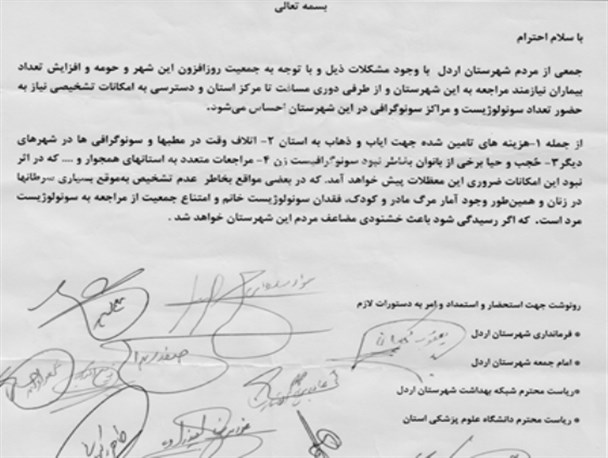 بسمه تعالی
با سلام احترام
جمعی از مردم شهرستان اردل با وجود مشکلات ذیل و با توجه به جمعیت روزافزون این شهر و حومه و افزایش تعداد
بیماران نیازمند مراجعه به این شهرستان و از طرفی دوری مسافت تا مرکز استان و دسترسی به امکانات تشخیصی نیاز به
حضور تعداد سونولوژیست و مراکز سونوگرافی در این شهرستان احساس می‌شود.
از جمله ۱-هزینه های تامین شده جهت ایاب و ذهاب به استان ۲- اتلاف وقت در مطبها و سونوگرافی ها در شهرهای
دیگر۳- حجب و حیا برخی از بانوان بخاطر نبود سونوگرافیست زن ۴- مراجعات متعدد به استانهای همجوار و .... که در اثر
نبود این امکانات ضروری این معظلات پیش خواهد آمد. که در بعضی مواقع بخاطر عدم تشخیص به‌موقع بسیاری سرطانها
در زنان و همین‌طور وجود آمار مرگ مادر و کودک، فقدان سونولوژیست خانم و امتناع جمعیت از مراجعه به سونولوژیست
مرد است. که اگر رسیدگی شود باعث خشنودی مضاعف مردم این شهرستان خواهد شد .
رونوشت جهت استحضار و استمداد و امر به دستورات لازم
* فرمانداری شهرستان اردل
* امام جمعه شهرستان اردل
*ریاست محترم شبکه بهداشت شهرستان اردل
* ریاست محترم دانشگاه علوم پزشکی استان